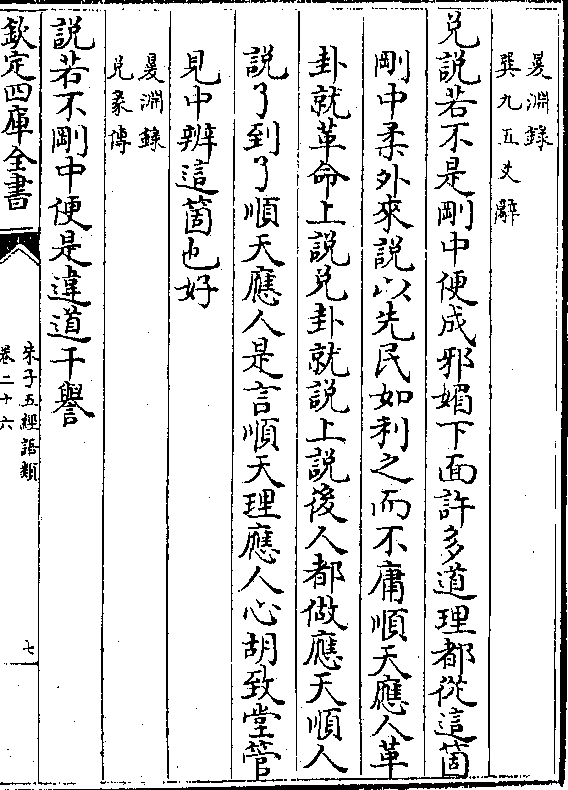 㬊淵錄
巽九五爻辭
兑說若不是剛中便成邪媚下面許多道理都從這箇
剛中柔外來說以先民如利之而不庸順天應人革
卦就革命上說兑卦就說上說後人都做應天順人
說了到了順天應人是言順天理應人心胡致堂管
見中辨這箇也好
㬊淵錄
兑彖傳
說若不剛中便是違道干譽
欽定四庫全書
朱子五經語類
卷二十六
七